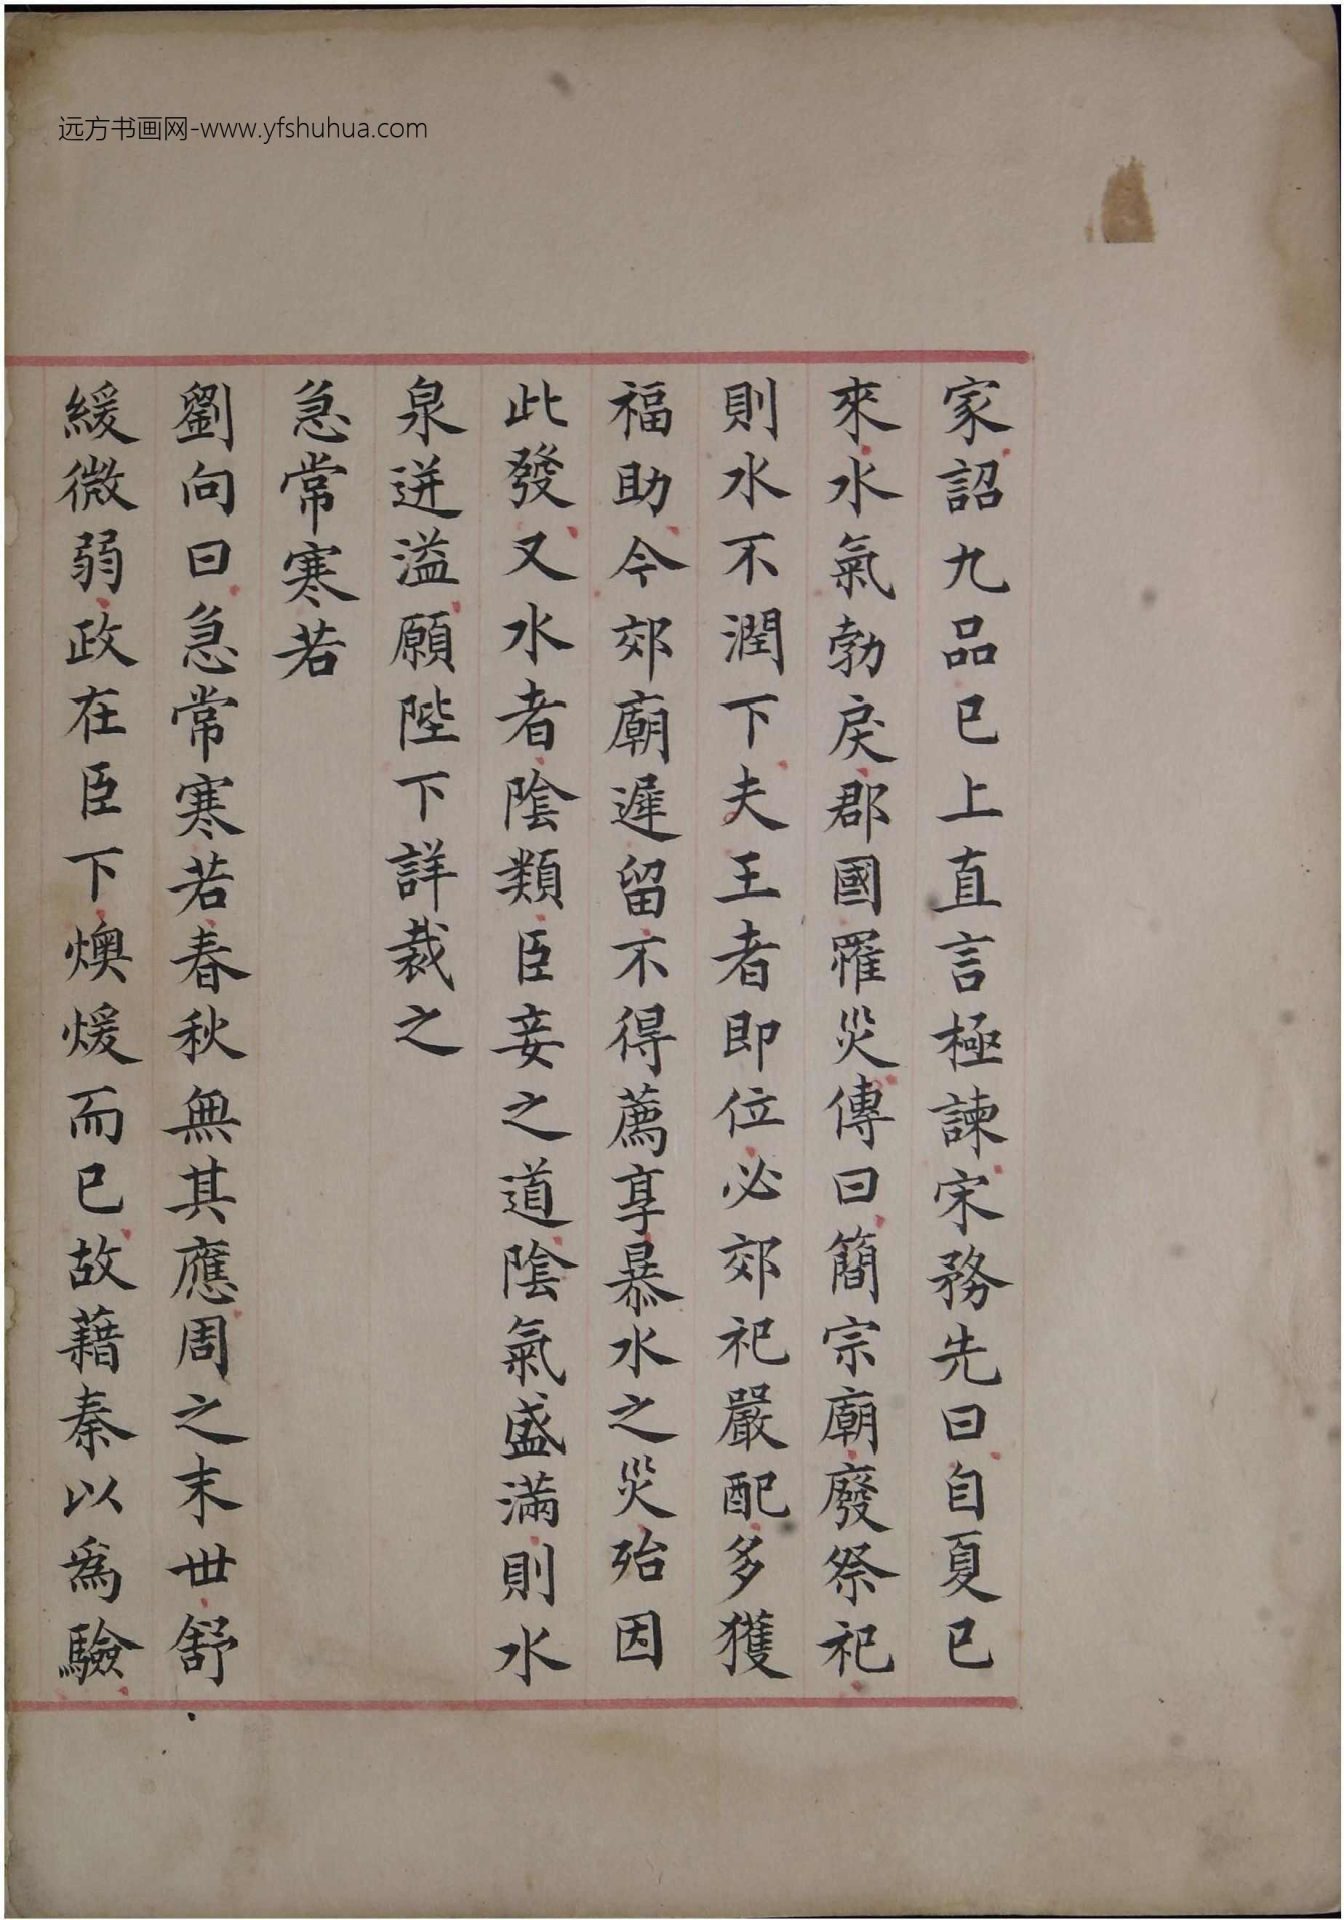 远方书画网-www.yfshuhua.com
家詔九品已上直言極諫宋務先曰自夏已
來水氣勃戾郡國罹災傳曰簡宗廟廢祭祀
則水不潤下夫王者即位必郊祀嚴配多獲
福助今郊廟遲留不得薦享暴水之災殆因
此發又水者陰類臣妾之道陰氣盛滿則水
泉迸溢願陛下詳裁之
急常寒若
劉向曰急常寒若春秋無其應周之末世舒
緩微弱政在臣下燠煖而已故藉秦以爲驗